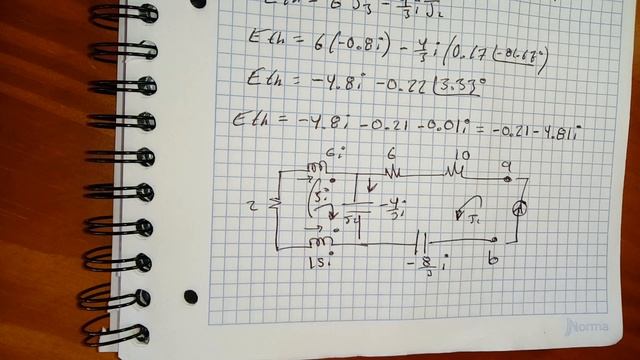 Eth = 6 J₃ - 4/3 i J₂
Eth = 6(-0.8i) - 4/3 i (0.17
Eth = -4.8i - 0.22 ∠3.33°
Eth = -4.8i - 0.21 - 0.01i = -0.21 - 4.81i
6i 6 10 a
2 5i - 4/3 i A
15i - 8/3 i b
Norma